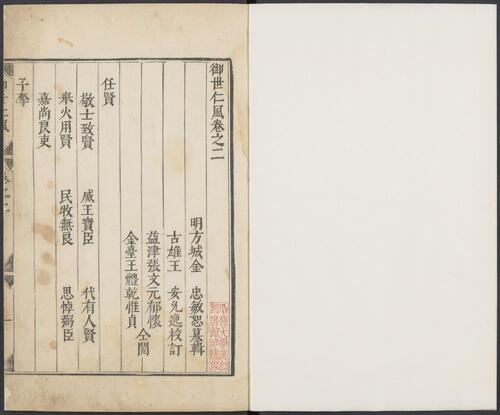 御世仁風卷之二
明方城金 忠敏恕墓輯
古雄王 安允逸校訂
益津張文元郁懷
仝閱
金臺王體乾惟貞
任賢
敬士致賢 威王寶臣 代有人賢
舉火用賢 民牧無良 思悼弼臣
嘉尚良吏
子孝